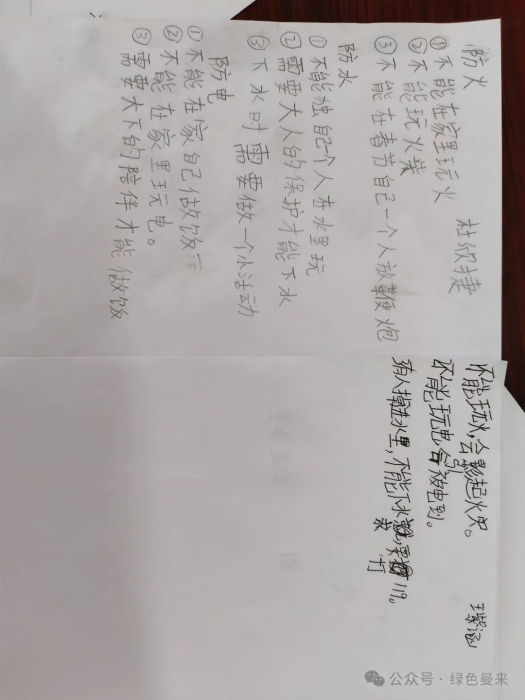 防火
杜欣捷
①不能在家里玩火
②不能玩火柴
③不能在春节自己一个人放鞭炮
防水
①不能独自己个人去水里玩
②需要大人的保护才能下水
③下水时需要做一个小活动
防电
①不能在家自己做饭
②不能在家里玩电。
③需要大下的陪伴才能做饭
不能玩火,会引起火灾。
不能玩电,会被电到。
有人掉进水里,不能下水救,要打119。
公众号·绿色曼来